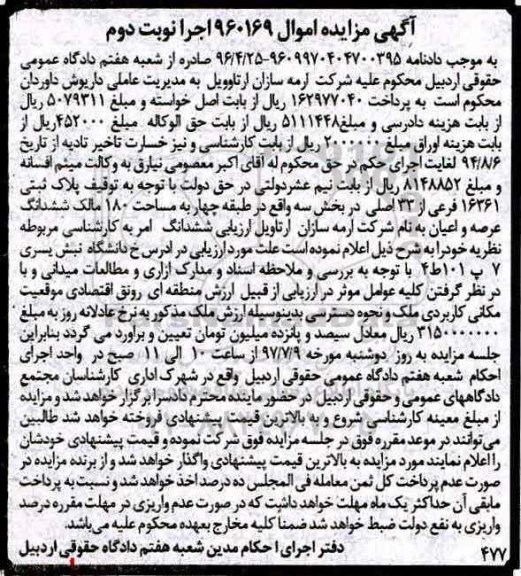 آگهی مزایده اموال ۹۶۰۱۶۹ اجرا نوبت دوم
به موجب دادنامه ۹۶۰۹۹۷۰۴۰۴۷۰۰۳۹۵-۹۶/۴/۲۵ صادره از شعبه هفتم دادگاه عمومی
حقوقی اردبیل محکوم علیه شرکت ارمه سازان ارتاویل به مدیریت عاملی داریوش داوردان
محکوم است به پرداخت ۱۶۲۹۷۷۰۴۰ ریال از بابت اصل خواسته و مبلغ ۵۰۷۹۳۱۱ ریال
از بابت هزینه دادرسی و مبلغ ۵۱۱۱۴۴۸ ریال از بابت حق الوکاله مبلغ ۴۵۲۰۰۰ ریال از
بابت هزینه اوراق مبلغ ۲۰۰۰۰۰۰ ریال از بابت کارشناسی و نیز خسارت تاخیر تادیه از تاریخ
۹۴/۸/۶ لغایت اجرای حکم در حق محکوم له آقای اکبر معصومی نیارق به وکالت میثم افسانه
و مبلغ ۸۱۴۸۸۵۲ ریال از بابت نیم عشردولتی در حق دولت با توجه به توقیف پلاک ثبتی
۱۶۳۶۱ فرعی از ۳۳ اصلی در بخش سه واقع در طبقه چهار به مساحت ۱۸۰ مالک ششدانگ
عرصه و اعیان به نام شرکت ارمه سازان ارتاویل ارزیابی ششدانگ امر به کارشناسی مربوطه
نظریه خودرا به شرح ذیل اعلام نموده است علت مورد ارزیابی در ادرس خ دانشگاه نبش یسری
۷ پ ۱۰۱ ط۴ با توجه به بررسی و ملاحظه اسناد و مدارک ازاری و مطالعات میدانی و با
در نظر گرفتن کلیه عوامل موثر در ارزیابی از قبیل ارزش منطقه ای رونق اقتصادی موقعیت
مکانی کاربردی ملک و نحوه دسترسی بدینوسیله ارزش ملک مذکور به نرخ عادلانه روز به مبلغ
۳۱۵۰۰۰۰۰۰۰ ریال معادل سیصد و پانزده میلیون تومان تعیین و براورد می گردد بنابراین
جلسه مزایده به روز دوشنبه مورخه ۹۷/۷/۹ از ساعت ۱۰ الی ۱۱ صبح در واحد اجرای
احکام شعبه هفتم دادگاه عمومی حقوقی اردبیل واقع در شهرک اداری کارشناسان مجتمع
دادگاههای عمومی و حقوقی اردبیل در حضور ماینده محترم دادسرا برگزار خواهد شد و مزایده
از مبلغ معینه کارشناسی شروع و به بالاترین قیمت پیشنهادی فروخته خواهد شد طالبین
می‌توانند در موعد مقرره فوق در جلسه مزایده فوق شرکت نموده و قیمت پیشنهادی خودشان
را اعلام نمایند مورد مزایده به بالاترین قیمت پیشنهادی واگذار خواهد شد و از برنده مزایده در
صورت عدم پرداخت کل ثمن معامله فی المجلس ده درصد اخذ خواهد شد و نسبت به پرداخت
مابقی آن حداکثر یک ماه مهلت خواهد داشت که در صورت عدم واریزی در مهلت مقرره درصد
واریزی به نفع دولت ضبط خواهد شد ضمنا کلیه مخارج بعهده محکوم علیه می‌باشد.
دفتر اجرای احکام مدین شعبه هفتم دادگاه حقوقی اردبیل
۴۷۷